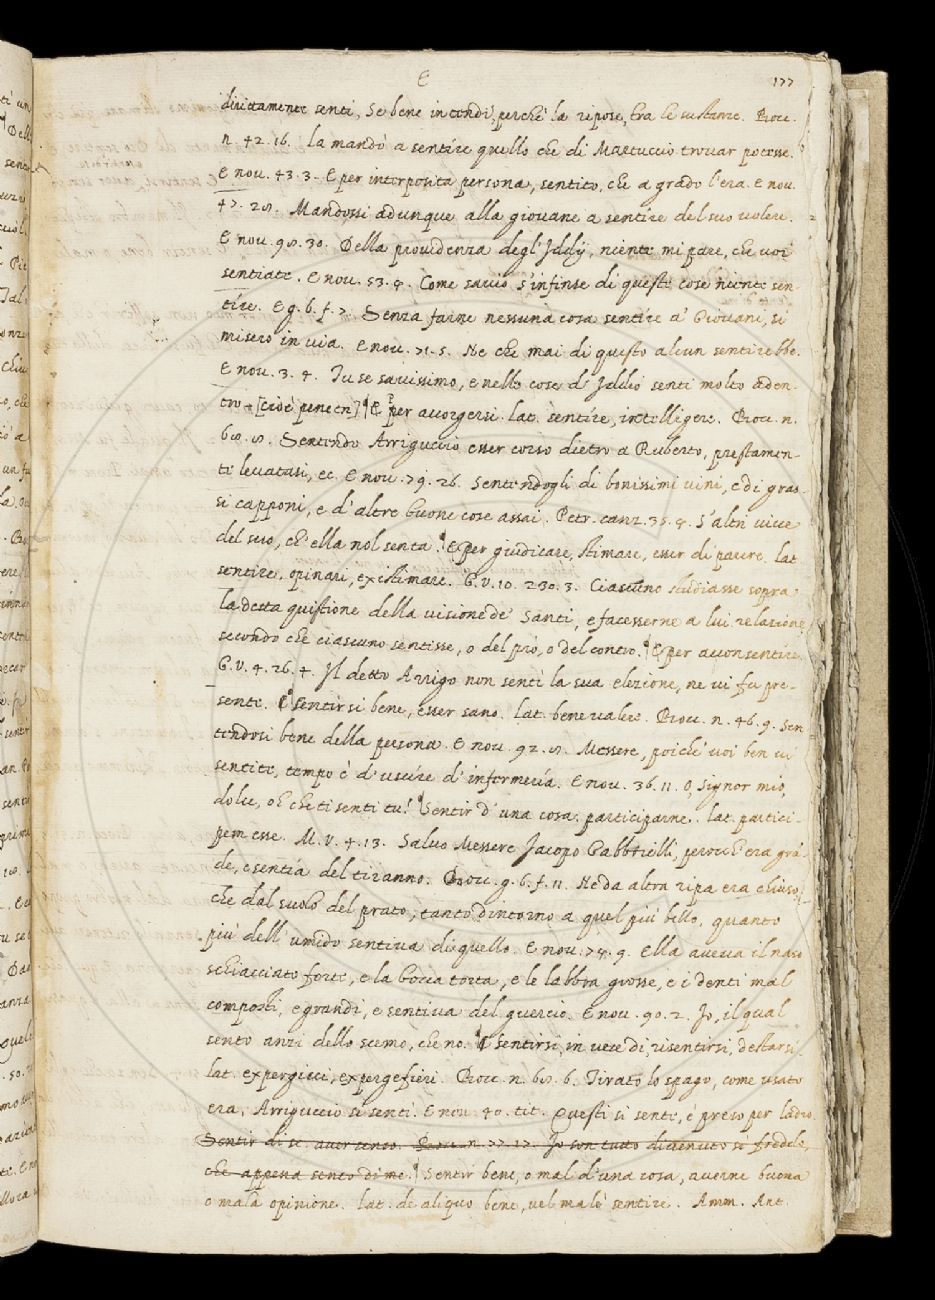 E 177
dirittamente senti, se bene intendi, perchè la ripose, tra le sustanze. Bocc.
n. 42. 16. la mandò a sentire quello che di Martuccio trovar potesse.
E nou. 43. 3. E per interposita persona, sentito, che a grado l'era. E nou.
47. 28. Mandossi adunque alla giovane a sentire del suo volere.
E nou. 98. 30. Della providenza degl'Iddij, niente mi pare, che voi
sentiate. E nou. 53. 4. Come savio s'infinse di queste cose niente sen-
tire. E g. 6. f. 7. Senza farne nessuna cosa sentire a' Giovani, si
misero in via. E nou. 71. 5. Ne che mai di questo alcun sentirebbe.
E nou. 3. 4. Tu se savissimo, e nelle cose d'Iddio senti molto aden-
tro [cioè penetri] ¶ E per accorgersi. lat. sentire, intelligere. Bocc. n.
68. 8. Sentendo Arriguccio esser corso dietro a Ruberto, prestamen-
te levatasi, ec. E nou. 79. 26. Sentendogli di bonissimi vini, e di gras-
si capponi, e d'altre buone cose assai. Petr. canz. 35. 4. S'altri vive
del suo, ch'ella nol senta. ¶ E per giudicare, stimare, esser di parere. lat.
sentire, opinari, existimare. G. V. 10. 230. 3. Ciascuno studiasse sopra
la detta quistione della visione de' Santi, e facesserne a lui relazione,
secondo che ciascuno sentisse, o del prò, o del contro. ¶ E per acconsentire.
G. V. 4. 26. 4. Il detto Arrigo non sentì la sua elezione, ne vi fu pre-
sente. ¶ Sentirsi bene, esser sano. lat. bene valere. Bocc. n. 46. 9. Sen
tendosi bene della persona. E nou. 92. 8. Messere, poichè voi ben vi
sentite, tempo è d'uscire d'infermeria. E nou. 36. 11. O, Signor mio,
dolce, o che ti senti tu? ¶ Sentir d'una cosa. participarne. lat. partici-
pem esse. M. V. 4. 13. Salvo Messere Jacopo Gabbrielli, perocch'era grã-
de, e sentía del tiranno. Bocc. g. 6. f. 11. Ne da altra ripa era chiuso
che dal suolo del prato, tanto dintorno a quel più bello, quanto
più dell'umido sentiva di quello. E nou. 74. 9. Ella aveva il naso
schiacciato forte, e la bocca torta, e le labbra grosse, e i denti mal
composti, e grandi, e sentiva del guercio. E nou. 90. 2. Io, il qual
sento anzi dello scemo, che no. ¶ Sentirsi, in vece di, risentirsi, destarsi.
lat. expergisci, expergefieri. Bocc. n. 68. 6. Tirato lo spago, come usato
era, Arriguccio si sentì. E nou. 40. tit. Questi si sente, è preso per ladro.
Sentir di se, aver senso. Bocc. n. 77. 17. Io son tutto divenuto sì freddo,
che appena sento di me. ¶ Sentir bene, o mal d'una cosa, averne buona
o mala opinione. lat. de aliquo bene, vel malè sentire. Amm. Ant.